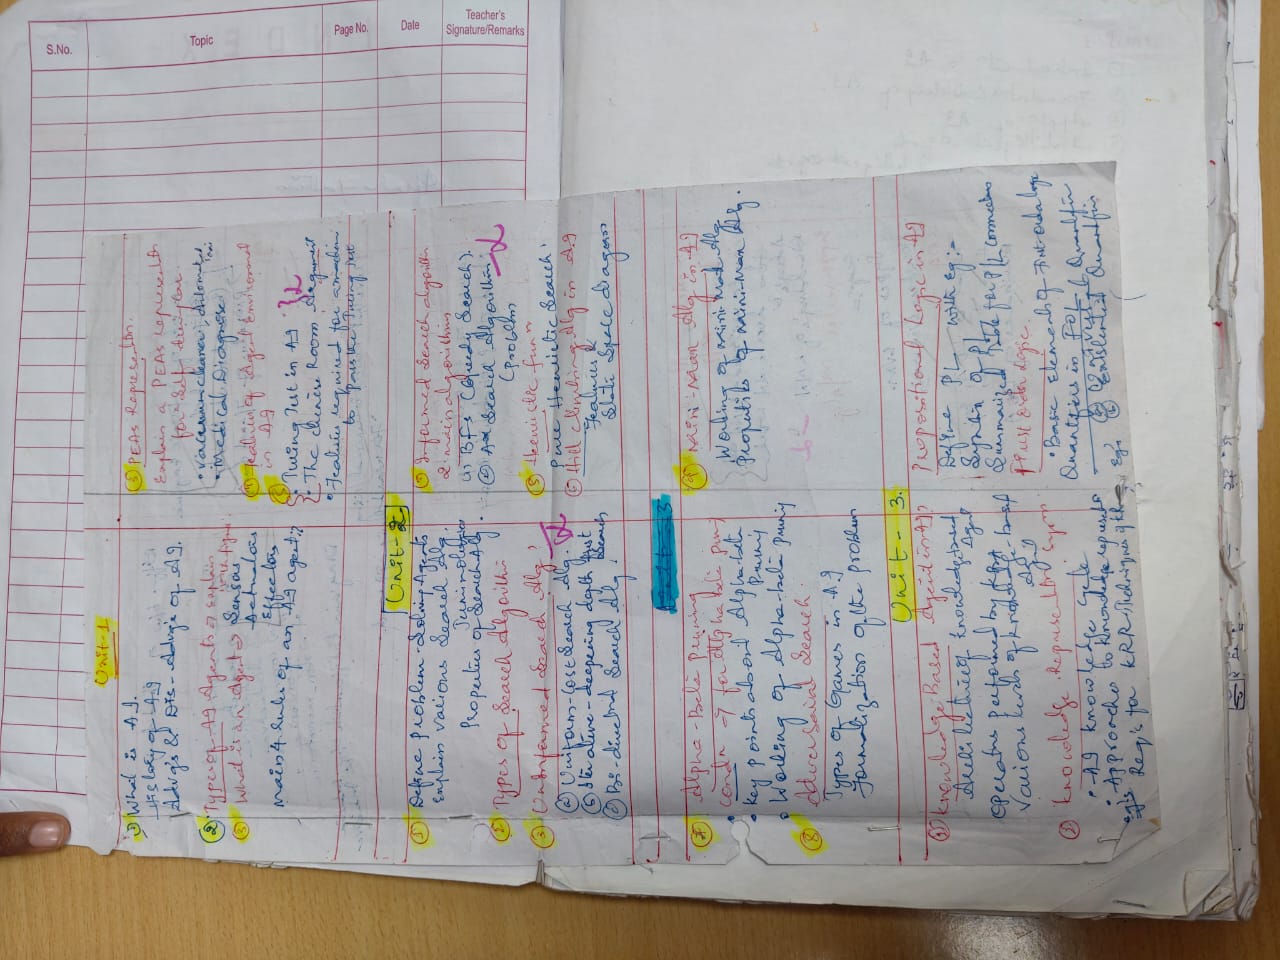 Unit-1
① What is AI.
History of AI
Advg's & Dis-Advg's of AI.
② Types of AI Agents → Explain
with figure.
③ What is an Agent → Sensors
Actuators
Effectors
Main 4 rules of an AI agent:
③ PEAS Represent
Explain a PEAS represent
for Self
• Vaccum cleaner, Automated
• Medical Diagnose
④ Featurs of Agent Environment
in AI
⑤
• Turing Test in AI
• The Chinese Room Argument
• Features required for a machine
to pass the Turing test
Unit-2
① Define Problem-Solving Agents
Explain Various Search Alg.
Properties of Search Alg.
② Types of Search Algorithm
③ Uninformed Search Alg
ⓐ Uniform-cost Search Alg.
ⓑ Iterative-deepening depth first
Search
ⓒ Bi-directnal Search Alg.
④ Informed Search algorithm
2 main algorithms
(1) BFS (Greedy Search).
② A* Search Algorithm
(Problem
⑤ Heuristic fun
Pure Heuristic Search.
⑥ Hill Climbing Alg in AI
Features &
State Space diagram
Unit-3
⑦ Alpha-Beta Pruning
• Condn → for Alpha beta
• Key points about Alpha-beta
• Working of Alpha-beta
⑧ Adversarial Search.
Types of Games in AI
Formalization of the problem
⑨ Mini-Max Alg in AI
Working of mini max Alg
Properties of mini-max Alg.
Unit-3.
① Knowledge Based Agent in AI
Architecture of knowledge based
Agent
Operatns performed by KBA
Various levels of knowledge-based
Agent
② Knowledge Represent
• AI knowledge Cycle
• Approaches to knowledge represent
eg's Req's for KRR-Techniques of KR
Propositional Logic in AI
Define PL with eg:-
Syntax of PL
Summarized Table for PL connectives
First order Logic.
• Basic Elements of First-order logic
Quantifiers in FOL
Existential
Eg's
S.No.
Topic
Page No.
Date
Teacher's
Signature/Remarks